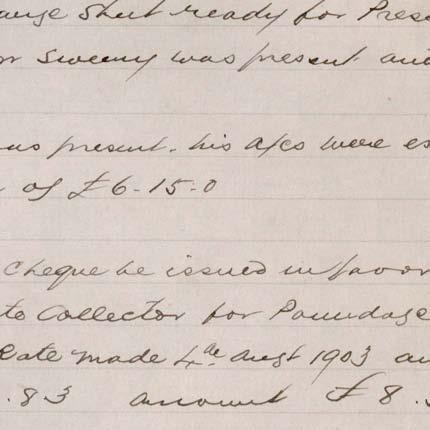 Sheet ready for Prese
or Sweeny was present and
as present. his a/cs were ex
of £6-15-0
Cheque be issued in favor
to Collector for Poundage
Rate made 4th augst 1903 an
.83 amount £8.